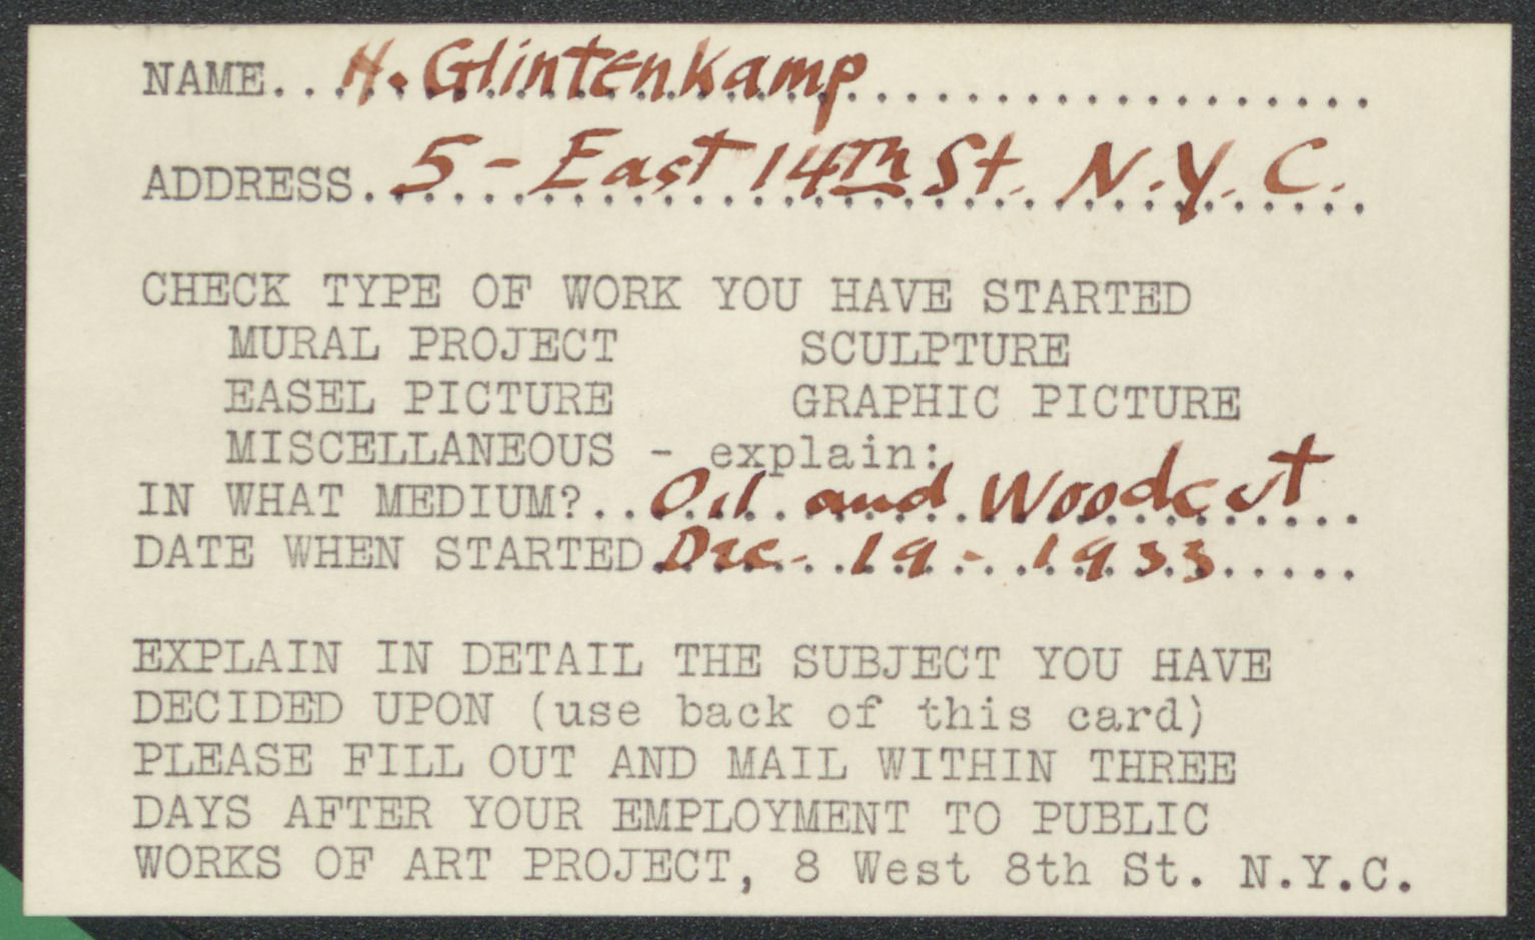 NAME...H. Glintenkamp..................
ADDRESS. 5 - East 14th St. N.Y.C.
CHECK TYPE OF WORK YOU HAVE STARTED
MURAL PROJECT SCULPTURE
EASEL PICTURE GRAPHIC PICTURE
MISCELLANEOUS - explain:
IN WHAT MEDIUM?..Oil and Woodcut..
DATE WHEN STARTED Dec - 19 - 1933.....
EXPLAIN IN DETAIL THE SUBJECT YOU HAVE
DECIDED UPON (use back of this card)
PLEASE FILL OUT AND MAIL WITHIN THREE
DAYS AFTER YOUR EMPLOYMENT TO PUBLIC
WORKS OF ART PROJECT, 8 West 8th St. N.Y.C.